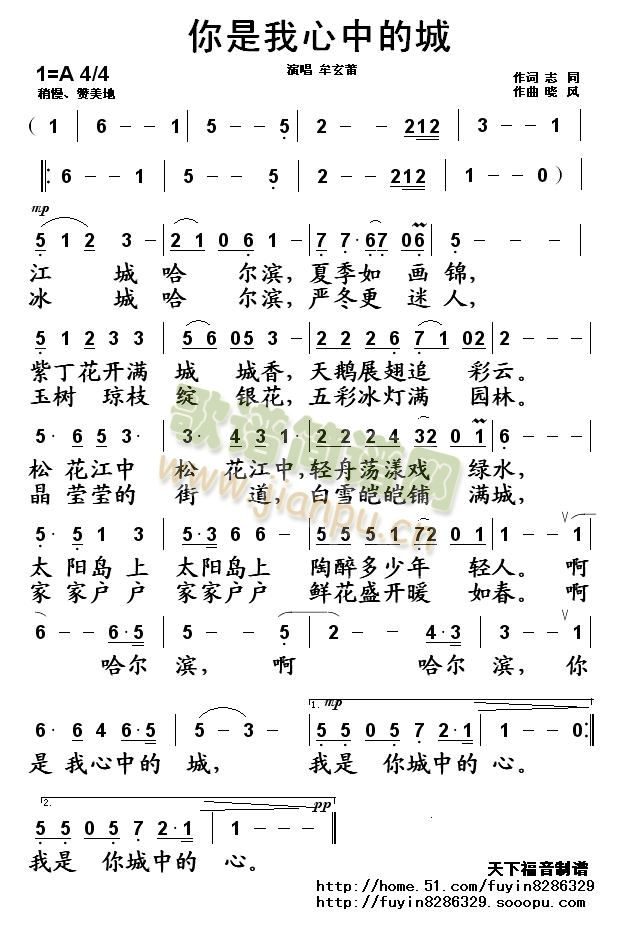 你是我心中的城
1=A 4/4
演唱 牟玄莆
作词 志 同
稍慢、赞美地
作曲 晓 风
( 1 | 6 - - 1 | 5 - - 5 | 2 - - 212 | 3 - - 1 |
‖: 6 - - 1 | 5 - - 5 | 2 - - 212 | 1 - - 0 )
mp
5 1 2 3 - | 2 1 0 6 1 | 7 7· 67 06 | 5 - - - |
江 城 哈 尔滨，夏季如 画锦，
冰 城 哈 尔滨，严冬更 迷人，
5 1 2 3 3 | 5 6 05 3 | 2 2 2 6 7 1 02 | 2 - - - |
紫丁花开满 城 城香，天鹅展翅追 彩云。
玉树 琼枝 绽 银花，五彩冰灯满 园林。
5· 6 5 3· | 3· 4 3 1· | 2 2 2 4 32 0 1 | 6 - - - |
松 花江中 松 花江中,轻舟荡漾戏 绿水，
晶 莹莹的 街 道，白雪皑皑铺 满城，
5· 5 1 3 | 5·3 6 6 | 5 5 5 1 72 0 1 | 1 - - 1 |
太 阳岛上 太阳岛上 陶醉多少年 轻人。啊
家 家户户 家家户户 鲜花盛开暖 如春。啊
6 - - 6·5 | 5 - - 5 | 2 - - 4·3 | 3 - - 1 |
哈尔 滨， 啊 哈尔 滨，你
1. mp
6· 6 4 6·5 | 5 - 3 - | 5 5 0 5 7 2·1 | 1 - - 0 :‖
是 我心中的 城， 我是 你城中的 心。
2. pp
5 5 0 5 7 2·1 | 1 - - - ‖
我是 你城中的 心。
天下福音制谱
http://home.51.com/fuyin8286329
http://fuyin8286329.sooopu.com
歌谱简谱网
www.jianpu.cn